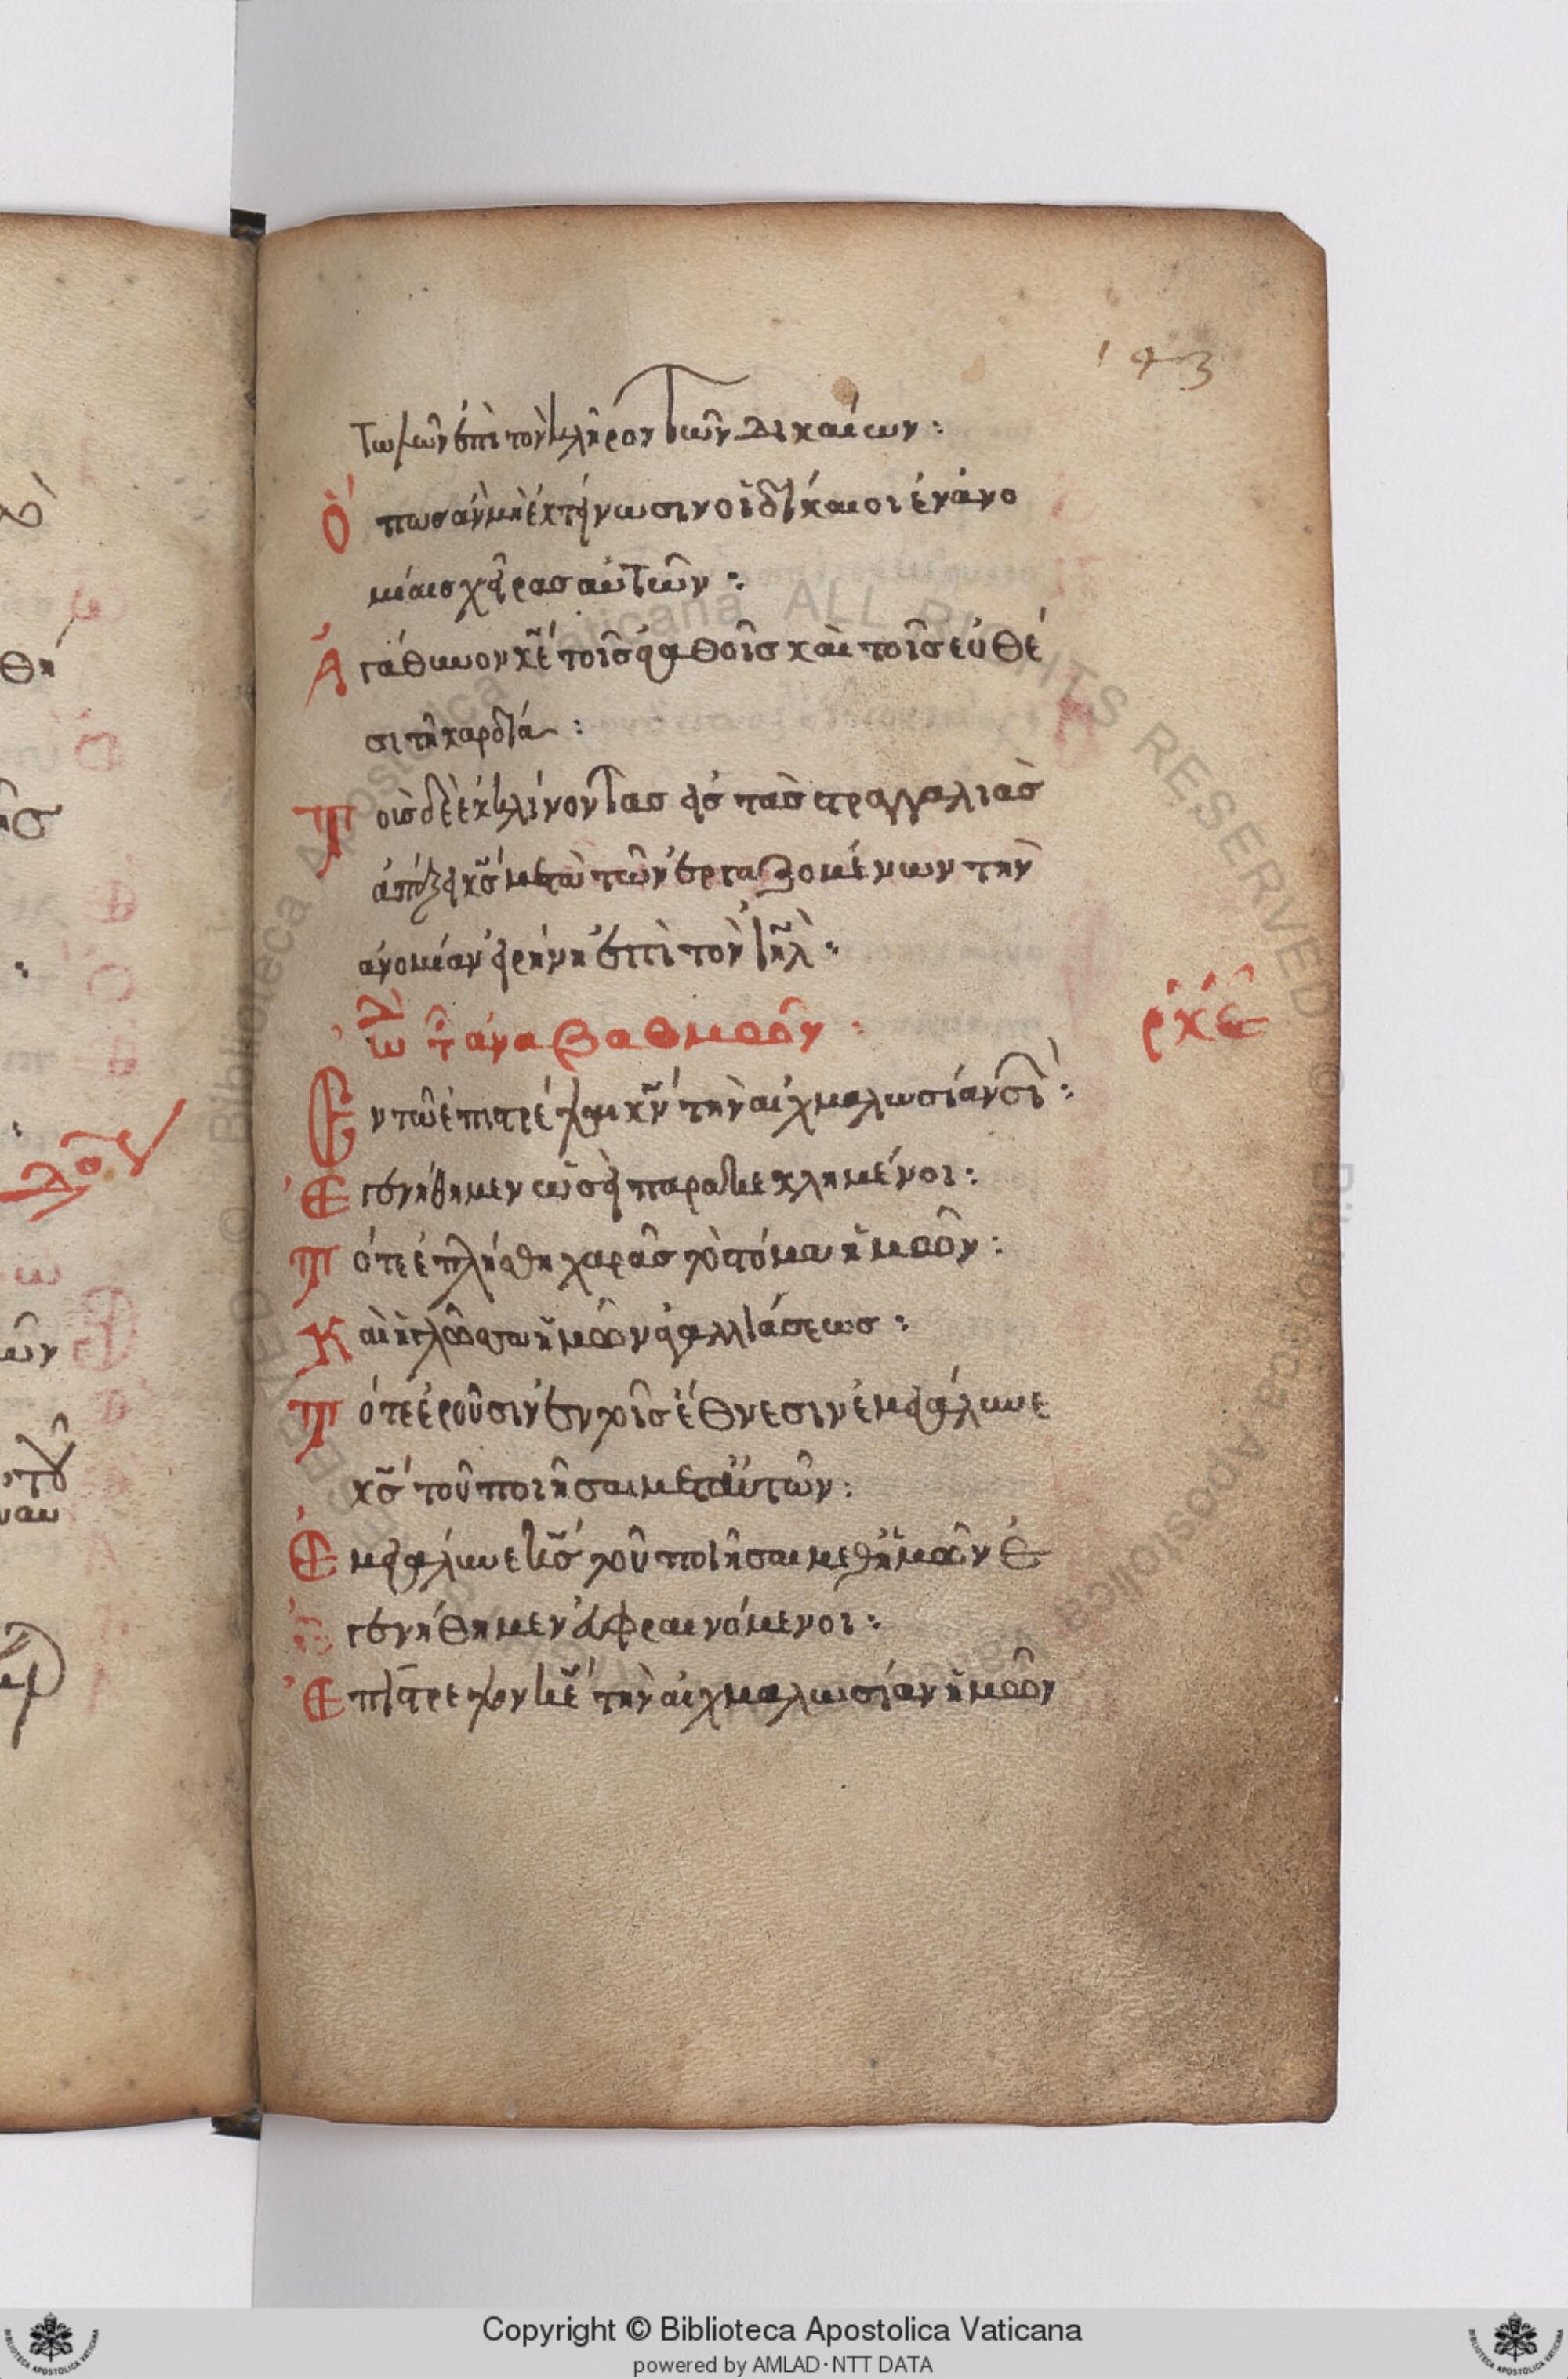 193
τωλῶν ἐπὶ τὸν κλῆρον τῶν δικαίων:
Ὅπωσ ἂν μὴ ἐκτείνωσιν οἱ δίκαιοι ἐν ἀνο
μίαισ χεῖρασ αὐτῶν:
Ἀγάθυνον κ̅ε̅ τοῖσ ἀγαθοῖσ καὶ τοῖσ εὐθέ
σι τῆ καρδία:
Τοὺσ δὲ ἐκκλίνοντασ εἰσ τὰσ στραγγαλιὰσ
ἀπάξει κ̅σ̅ μετὰ τῶν ἐργαζομένων τὴν
ἀνομίαν εἰρήνη ἐπὶ τὸν ι̅η̅λ̅:
ὠδ τῶν ἀναβαθμῶν:
ρκε
Ἐν τῶ ἐπιστρέψαι κ̅ν̅ τὴν αἰχμαλωσίαν σι:
Ἐγενήθημεν ὡσεὶ παρακεκλημένοι:
Τότε ἐπλήσθη χαρᾶσ τὸ στόμα ἡμῶν:
Καὶ ἡ γλῶσσα ἡμῶν ἀγαλλιάσεωσ:
Τότε ἐροῦσιν ἐν τοῖσ ἔθνεσιν ἐμεγάλυνε
κ̅σ̅ τοῦ ποιῆσαι μετ αὐτῶν:
Ἐμεγάλυνε κ̅σ̅ τοῦ ποιῆσαι μεθ ἡμῶν ἐ
γενήθημεν εὐφραινόμενοι:
Ἐπίστρεψον κ̅ε̅ τὴν αἰχμαλωσίαν ἡμῶν
Copyright © Biblioteca Apostolica Vaticana
powered by AMLAD·NTT DATA